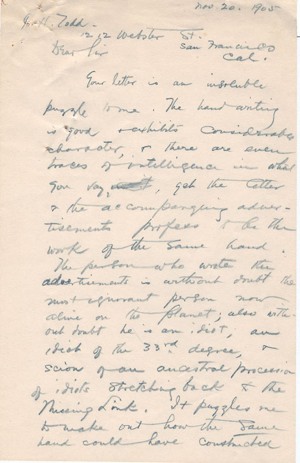 Nov. 20. 1905
J. H. Todd
1212 Webster St.
Dear Sir
San Francisco
Cal.
Your letter is an insoluble
puzzle to me. The handwriting
is good & exhibits considerable
character, & there are even
traces of intelligence in what
you say, yet the letter
& the accompanying adver-
tisements profess to be the
work of the same hand.
The person who wrote the
advertisements is without doubt the
most ignorant person now
alive on the planet; also with-
out doubt he is an idiot, an
idiot of the 33rd degree, &
scion of an ancestral procession
of idiots stretching back to the
Missing Link. It puzzles me
to make out how the same
hand could have constructed